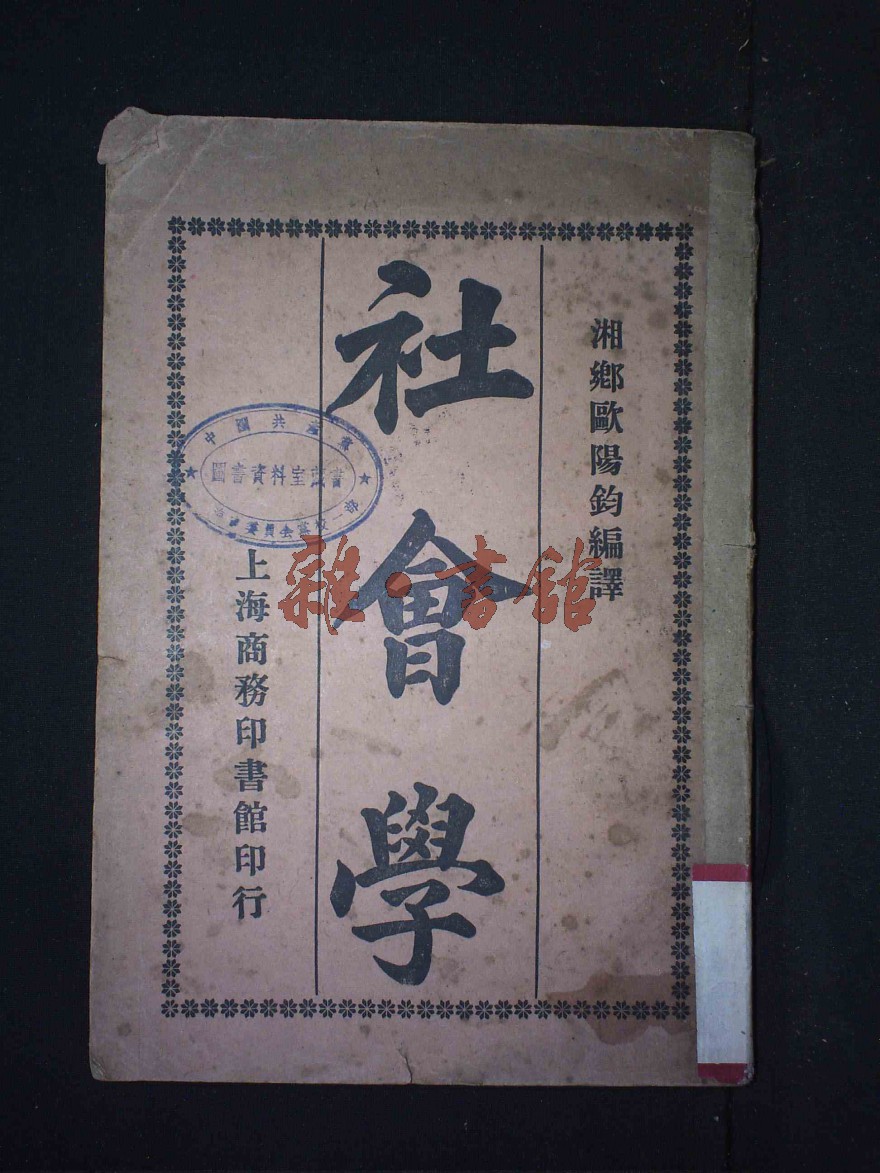 湘鄉歐陽鈞編譯
社會學
上海商務印書館印行
中國共產黨
圖書資料室藏書
雜·書館